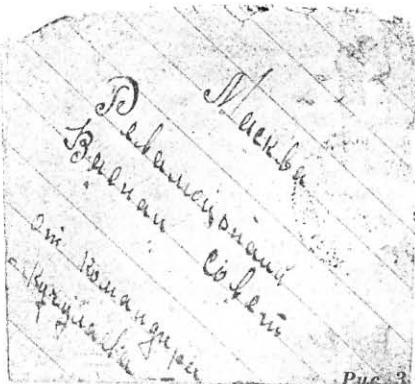 Москва
Революцiонный
Военный совет
от командира
Рис. 3